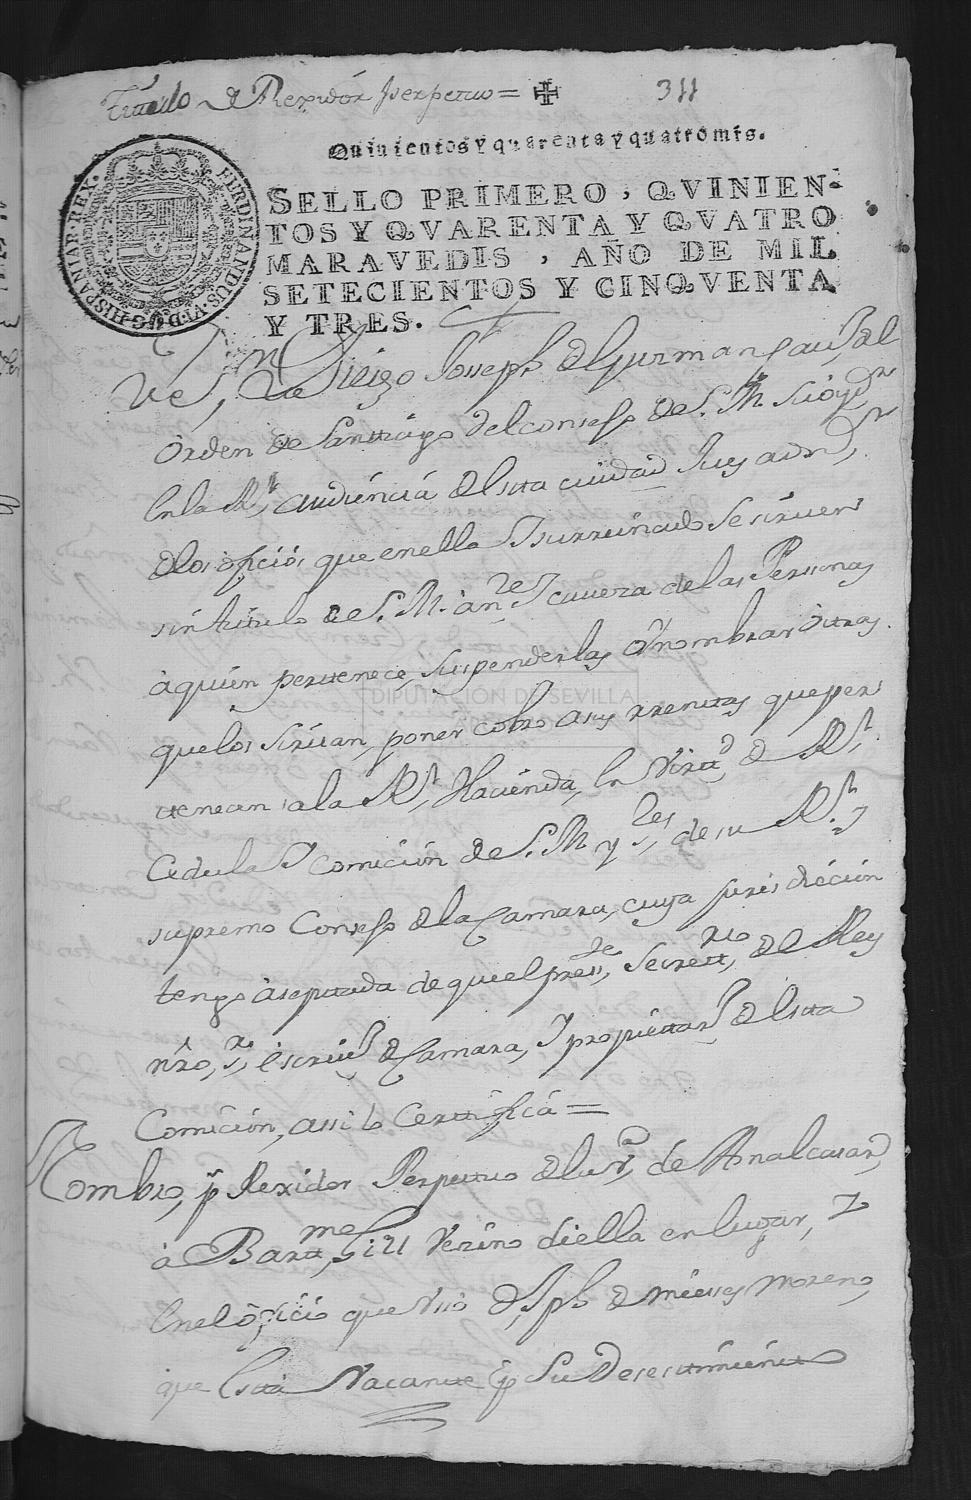 Titulo de Rexidor perpetuo = ✠ 311
Quinientos y quarenta y quatro mrs.
FERDINANDUS·VI·D·G·HISPANIAR·REX·
SELLO PRIMERO, QVINIEN-
TOS Y QVARENTA Y QVATRO
MARAVEDIS, AÑO DE MIL
SETECIENTOS Y CINQVENTA
Y TRES.
Dn Diego Joseph de Guzman Cavll del
Orden de Santtiago del consejo de S. M. su oydr
En la Rl, Audiencia de estta ciudad Juez
de los oficios que en ella Y su rreinado se sirven
sin titulo de S. M. Y caveza de las Personas
à quien perttenece, suspenderlas y nombrar òttras
que los sirvan, poner cobro a sus rrenttas que per
ttenecen a la Rl, Hacienda, En Virttd de Rl,
Cedula Y Comición de S. M. y Sres, de su Rl, y
supremo Consejo de la Camara, cuya jurisdicción
tengo àseptada de que el presste, Secrettrio, de el Rey
nro, sr, escrivo de Camara, Y propiettaro de estta
Comición, assi lo Certtifica =
Nombro, p Rexidor Perpettuo de la va, de Asnalcasar,
à Barttme, Gil Vezino de ella en lugar, Y
En el òficio que Uso Dn, Jph de Mieses Moreno,
que Estta Vacantte p Su Desesttimientto
DIPUTACIÓN DE SEVILLA